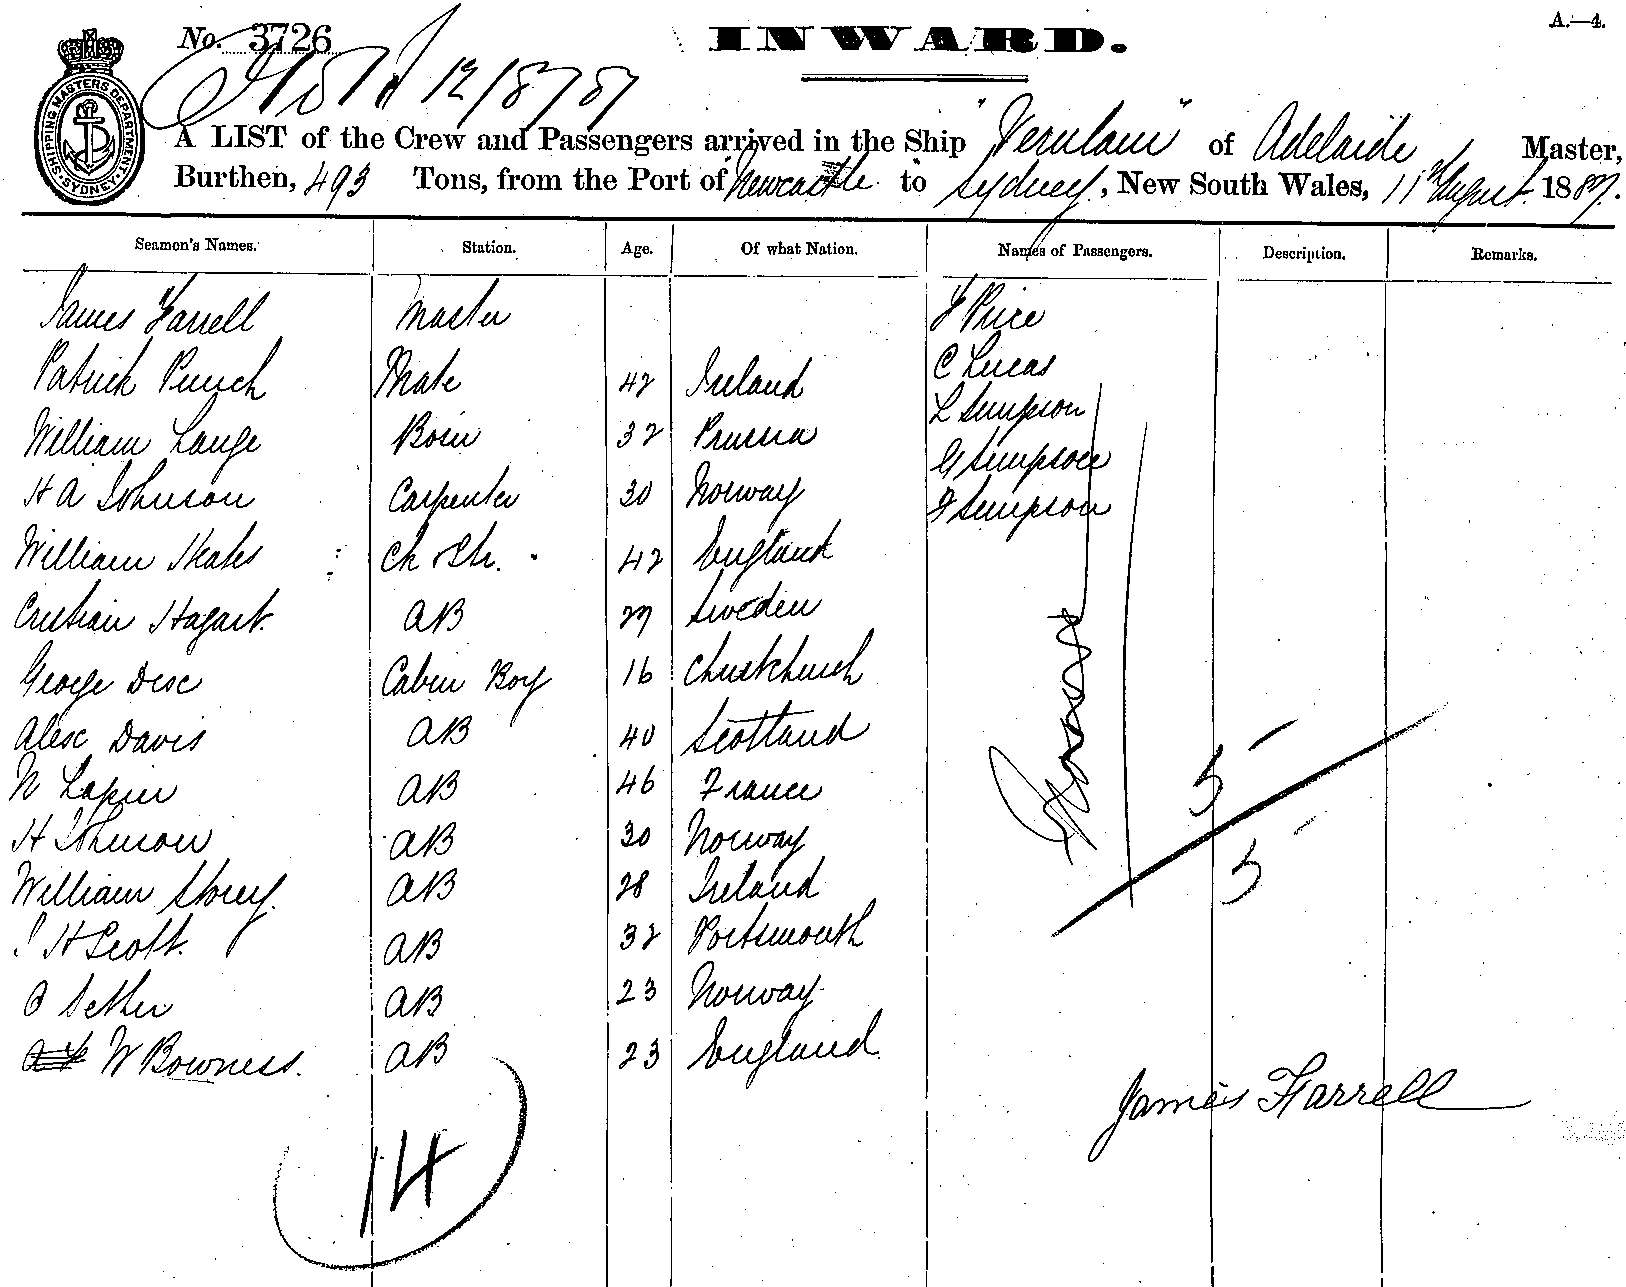 No. 3726
INWARD.
A.—4.
12/8/87
SHIPPING MASTERS DEPARTMENT. SYDNEY.
A LIST of the Crew and Passengers arrived in the Ship "Verulam" of Adelaide Master,
Burthen, 493 Tons, from the Port of Newcastle to Sydney, New South Wales, 11th August 1887.
Seamen's Names. Station. Age. Of what Nation. Names of Passengers. Description. Remarks.
James Farrell Master J Price
Patrick Punch Mate 42 Ireland C Lucas
L Simpson
William Lange Bosn 32 Prussia G Simpson
H A Johnson Carpenter 30 Norway F Simpson
William 42 England
Cristian Hagart. AB 27 Sweden
George Cabin Boy 16 Christchurch
Alexc Davis AB 40 Scotland
N Lapier AB 46 France
H Johnson AB 30 Norway
William Storey. AB 28 Ireland
J H Scott. AB 32 Portsmouth
O Sether AB 23 Norway
W Bowness. AB 23 England
5
5
James Farrell
14